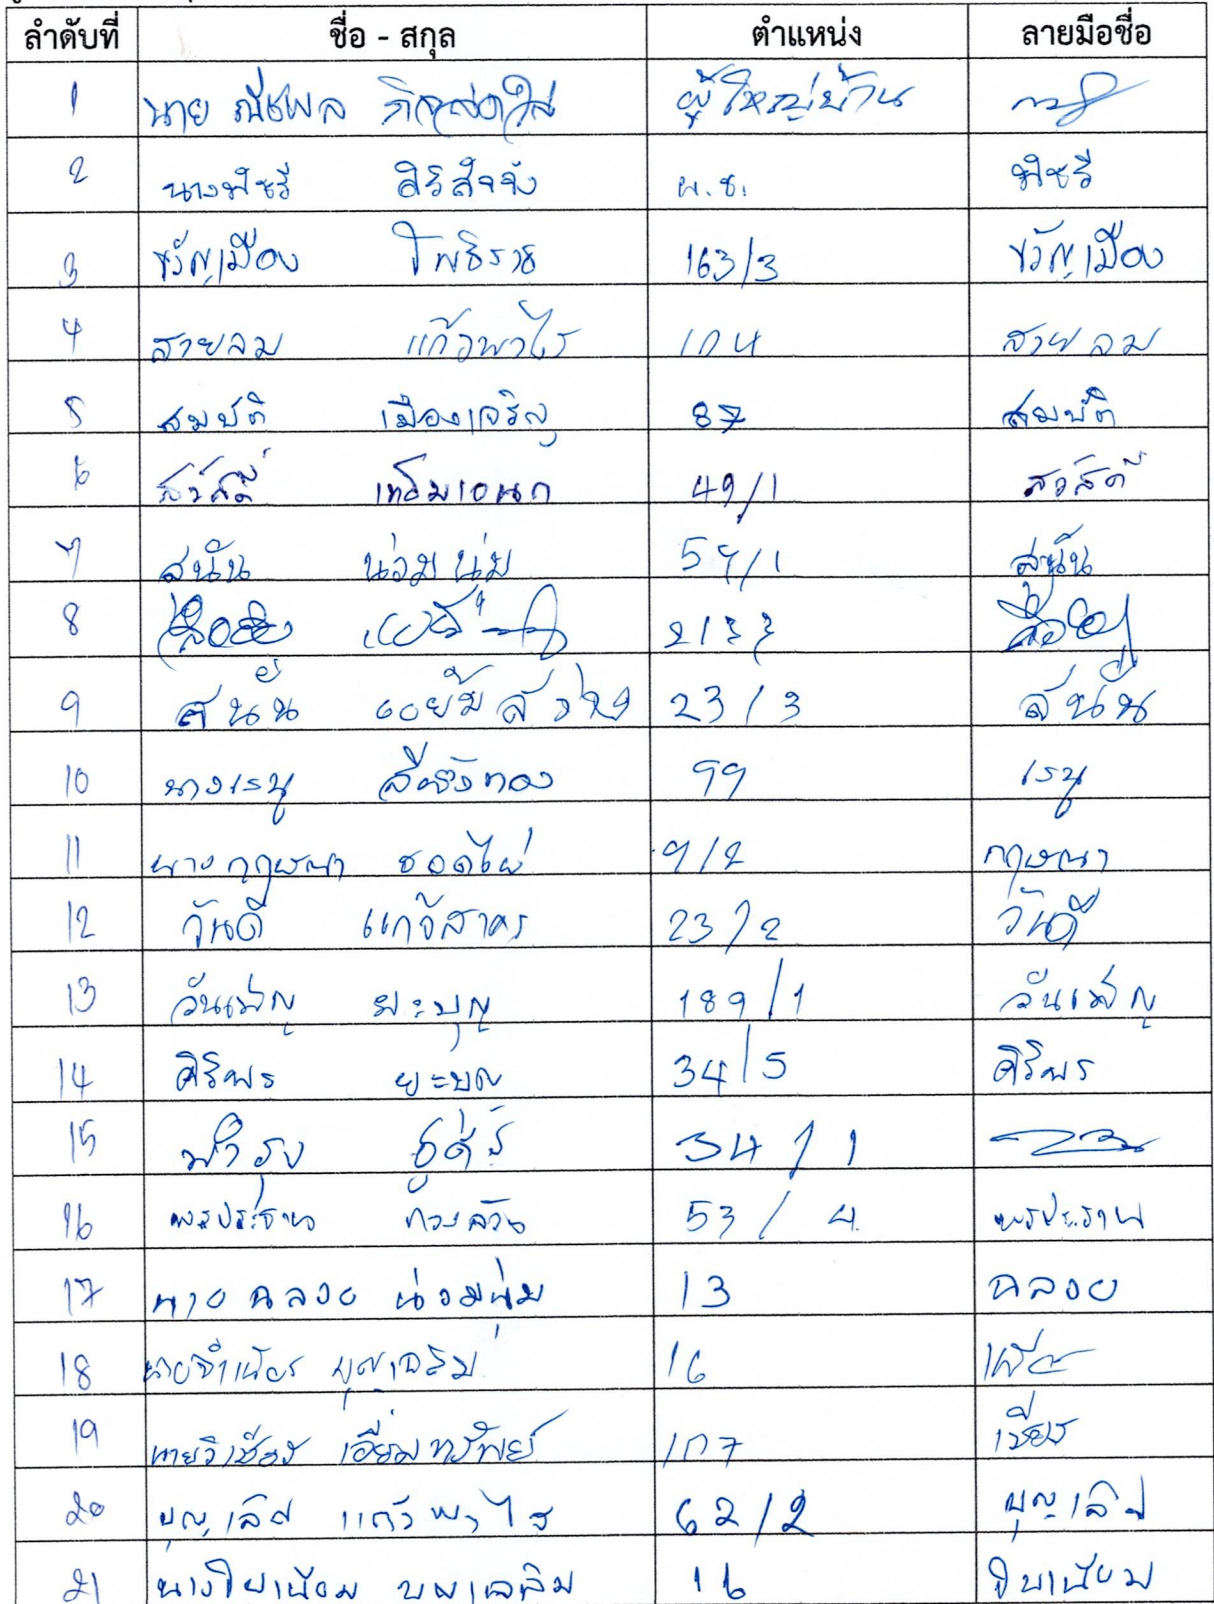 ลำดับที่ ชื่อ - สกุล ตำแหน่ง ลายมือชื่อ
1 นาย ณัชพล ผู้ใหญ่บ้าน
2 นางพัชรี สิริสัจจัง ผ.ช. พัชรี
3 ขวัญเมือง โพธิราช 163/3 ขวัญเมือง
4 สายลม แก้วพาไร 104 สายลม
5 สมบัติ เมืองเจริญ 87 สมบัติ
6 สวัสดิ์ เหลิมเอนก 49/1 สวัสดิ์
7 สนัน น่วมนุ่ม 57/1 สนัน
8
9 สนั่น แย้มสว่าง 23/3 สนั่น
10 นางเรนู 99 เรนู
11 นางกฤษณา ชอดไผ่ 9/2 กฤษณา
12 วันดี แก้วสาคร 23/2 วันดี
13 วันเพ็ญ ยะบุญ 189/1 วันเพ็ญ
14 ศิริพร ยะบุญ 34/5 ศิริพร
15 34/1
16 ทองล้วน 53/4
17 นาย ฉลวย น่วมนุ่ม 13 ฉลวย
18 นายจำเนียร บุญเฉลิม 16
19 นายวิเชียร เอี่ยมทรัพย์ 107 เชียร
20 บุญเลิศ แก้วพาไร 62/2 บุญเลิศ
21 16